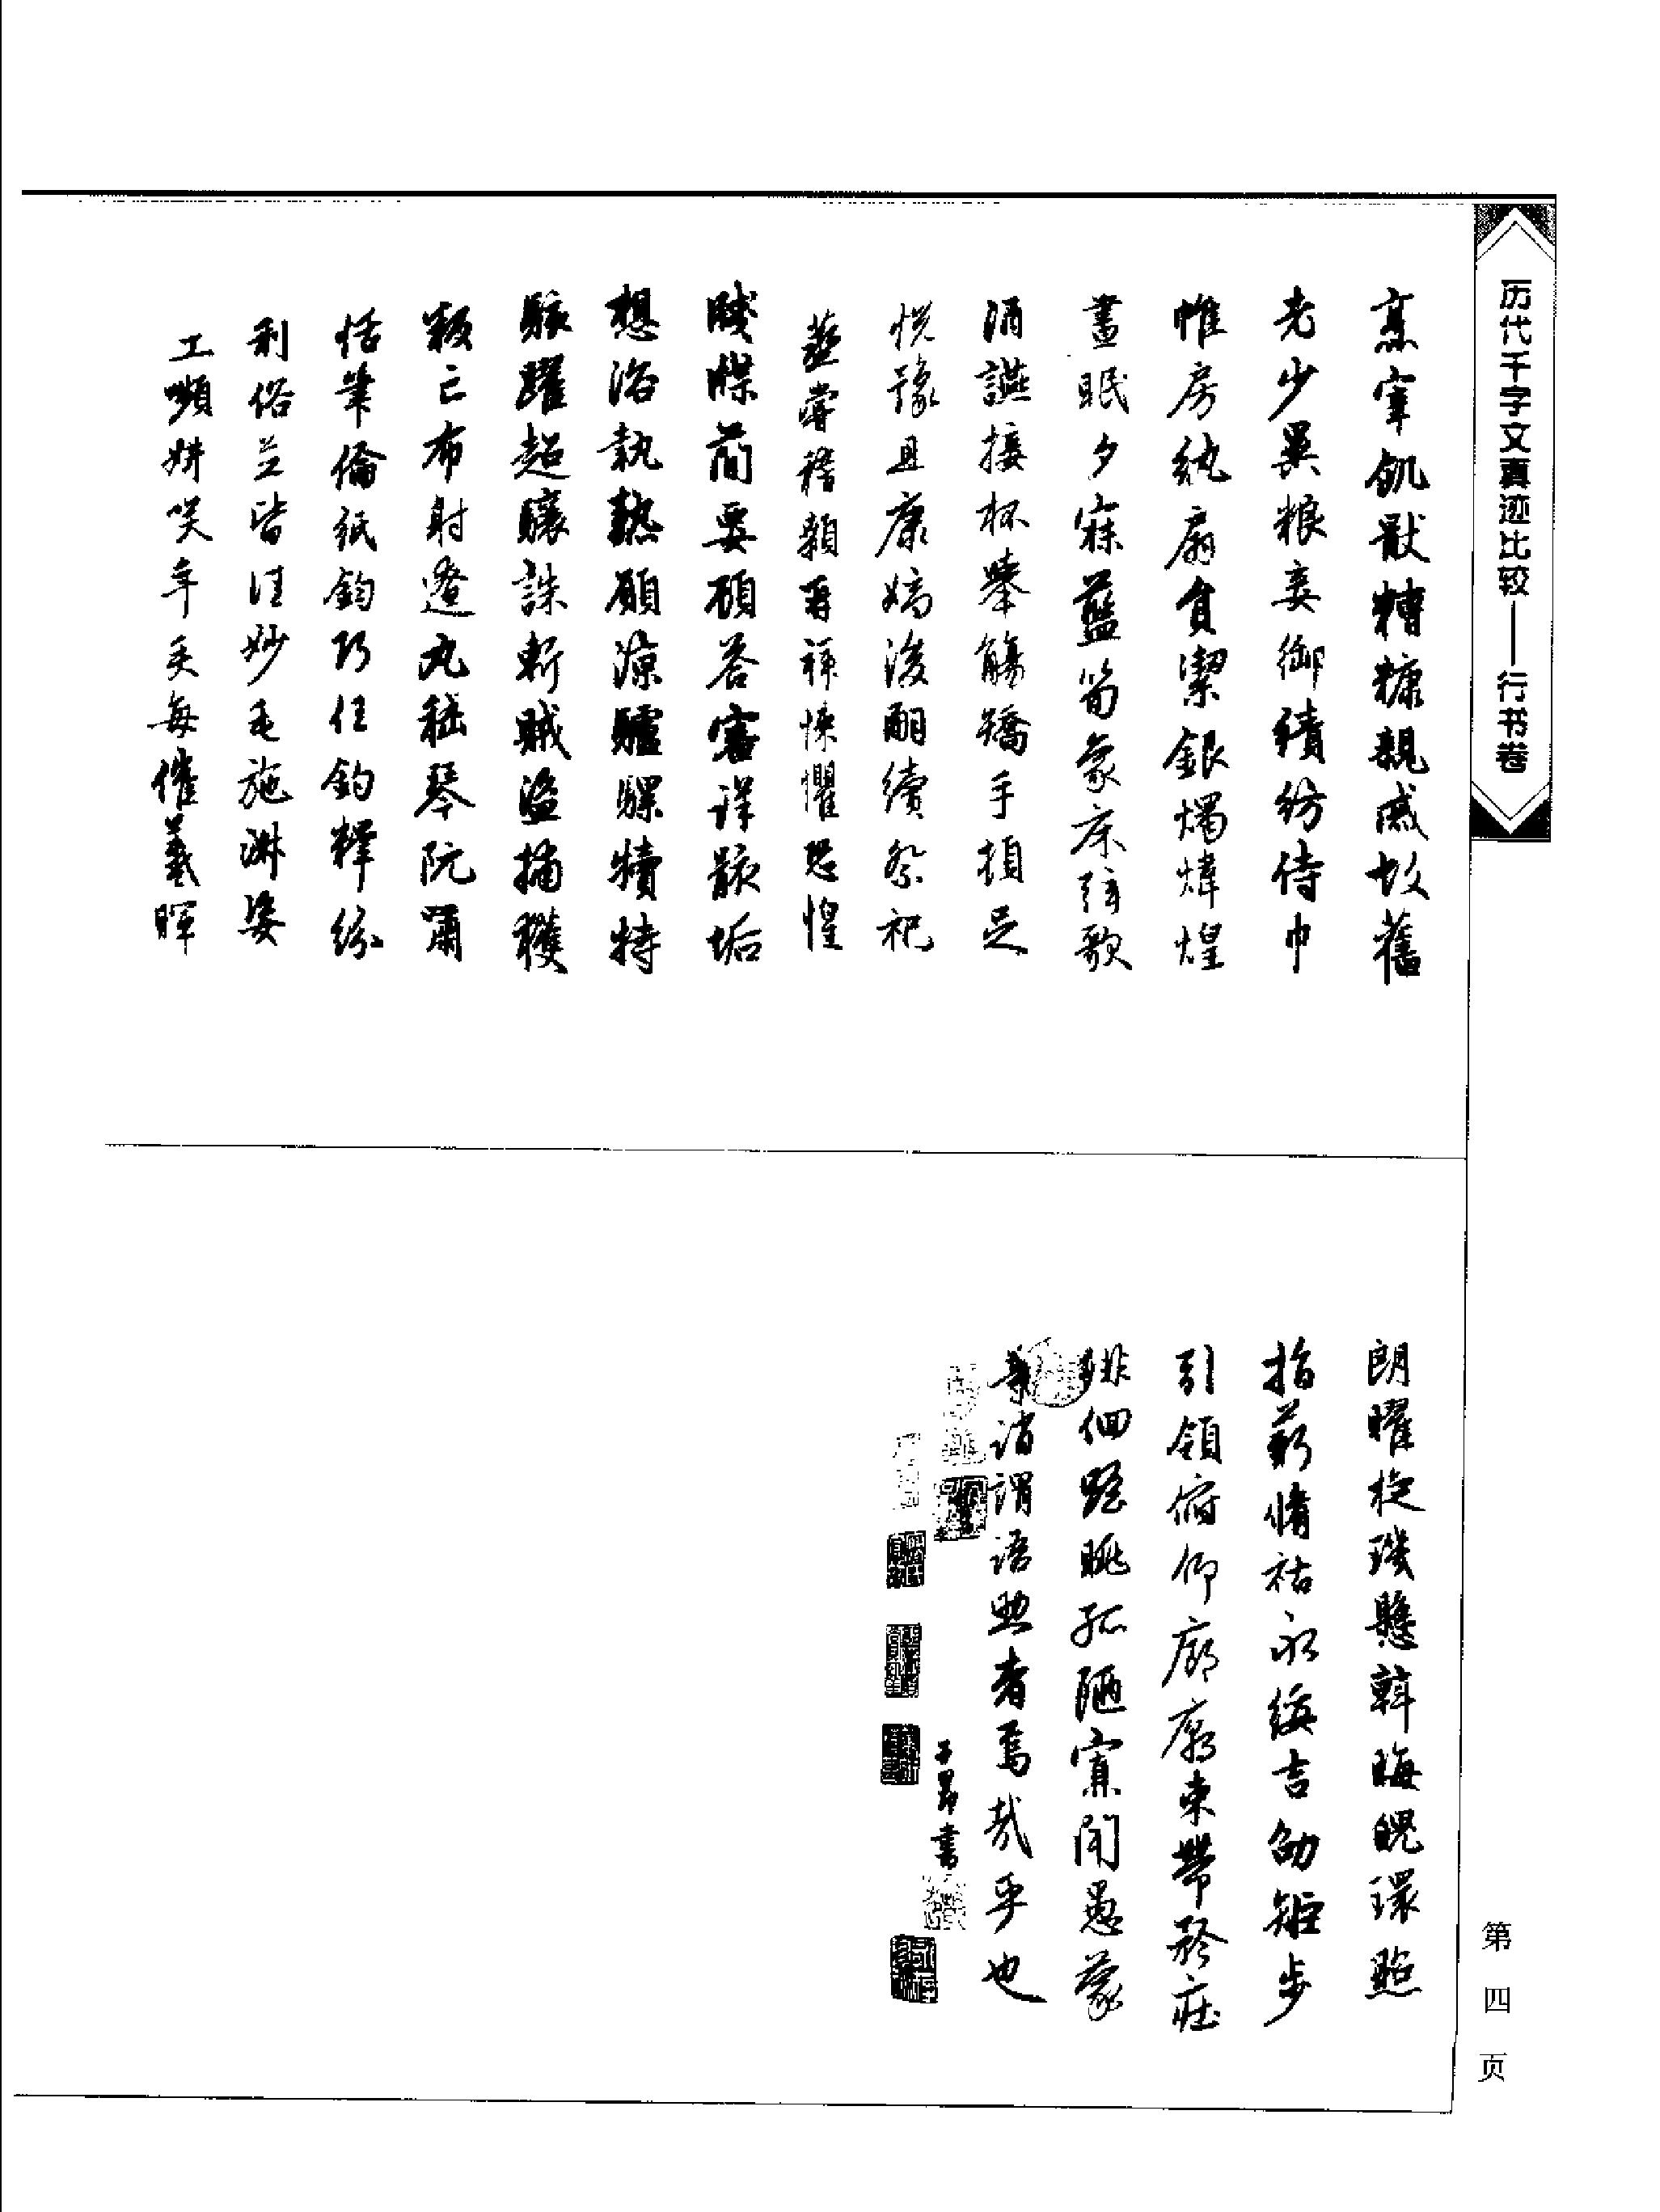 历代千字文真迹比较——行书卷
烹宰飢猒糟糠親戚故舊
老少異粮妾御績紡侍巾
帷房紈扇員潔銀燭煒煌
晝眠夕寐藍筍象床弦歌
酒讌接杯舉觴矯手頓足
悦豫且康嫡後嗣續祭祀
蒸嘗稽顙再拜悚懼恐惶
牋牒簡要顧答審詳骸垢
想浴執熱願涼驢騾犢特
駭躍超驤誅斬賊盜捕獲
叛亡布射遼丸嵇琴阮嘯
恬筆倫紙鈞巧任釣釋紛
利俗並皆佳妙毛施淑姿
工嚬妍笑年矢每催羲暉
朗曜旋璣懸斡晦魄環照
指薪脩祜永綏吉劭矩步
引領俯仰廊廟束帶矜莊
徘佪瞻眺孤陋寡聞愚蒙
等誚謂語助者焉哉乎也
子昂書
第四页